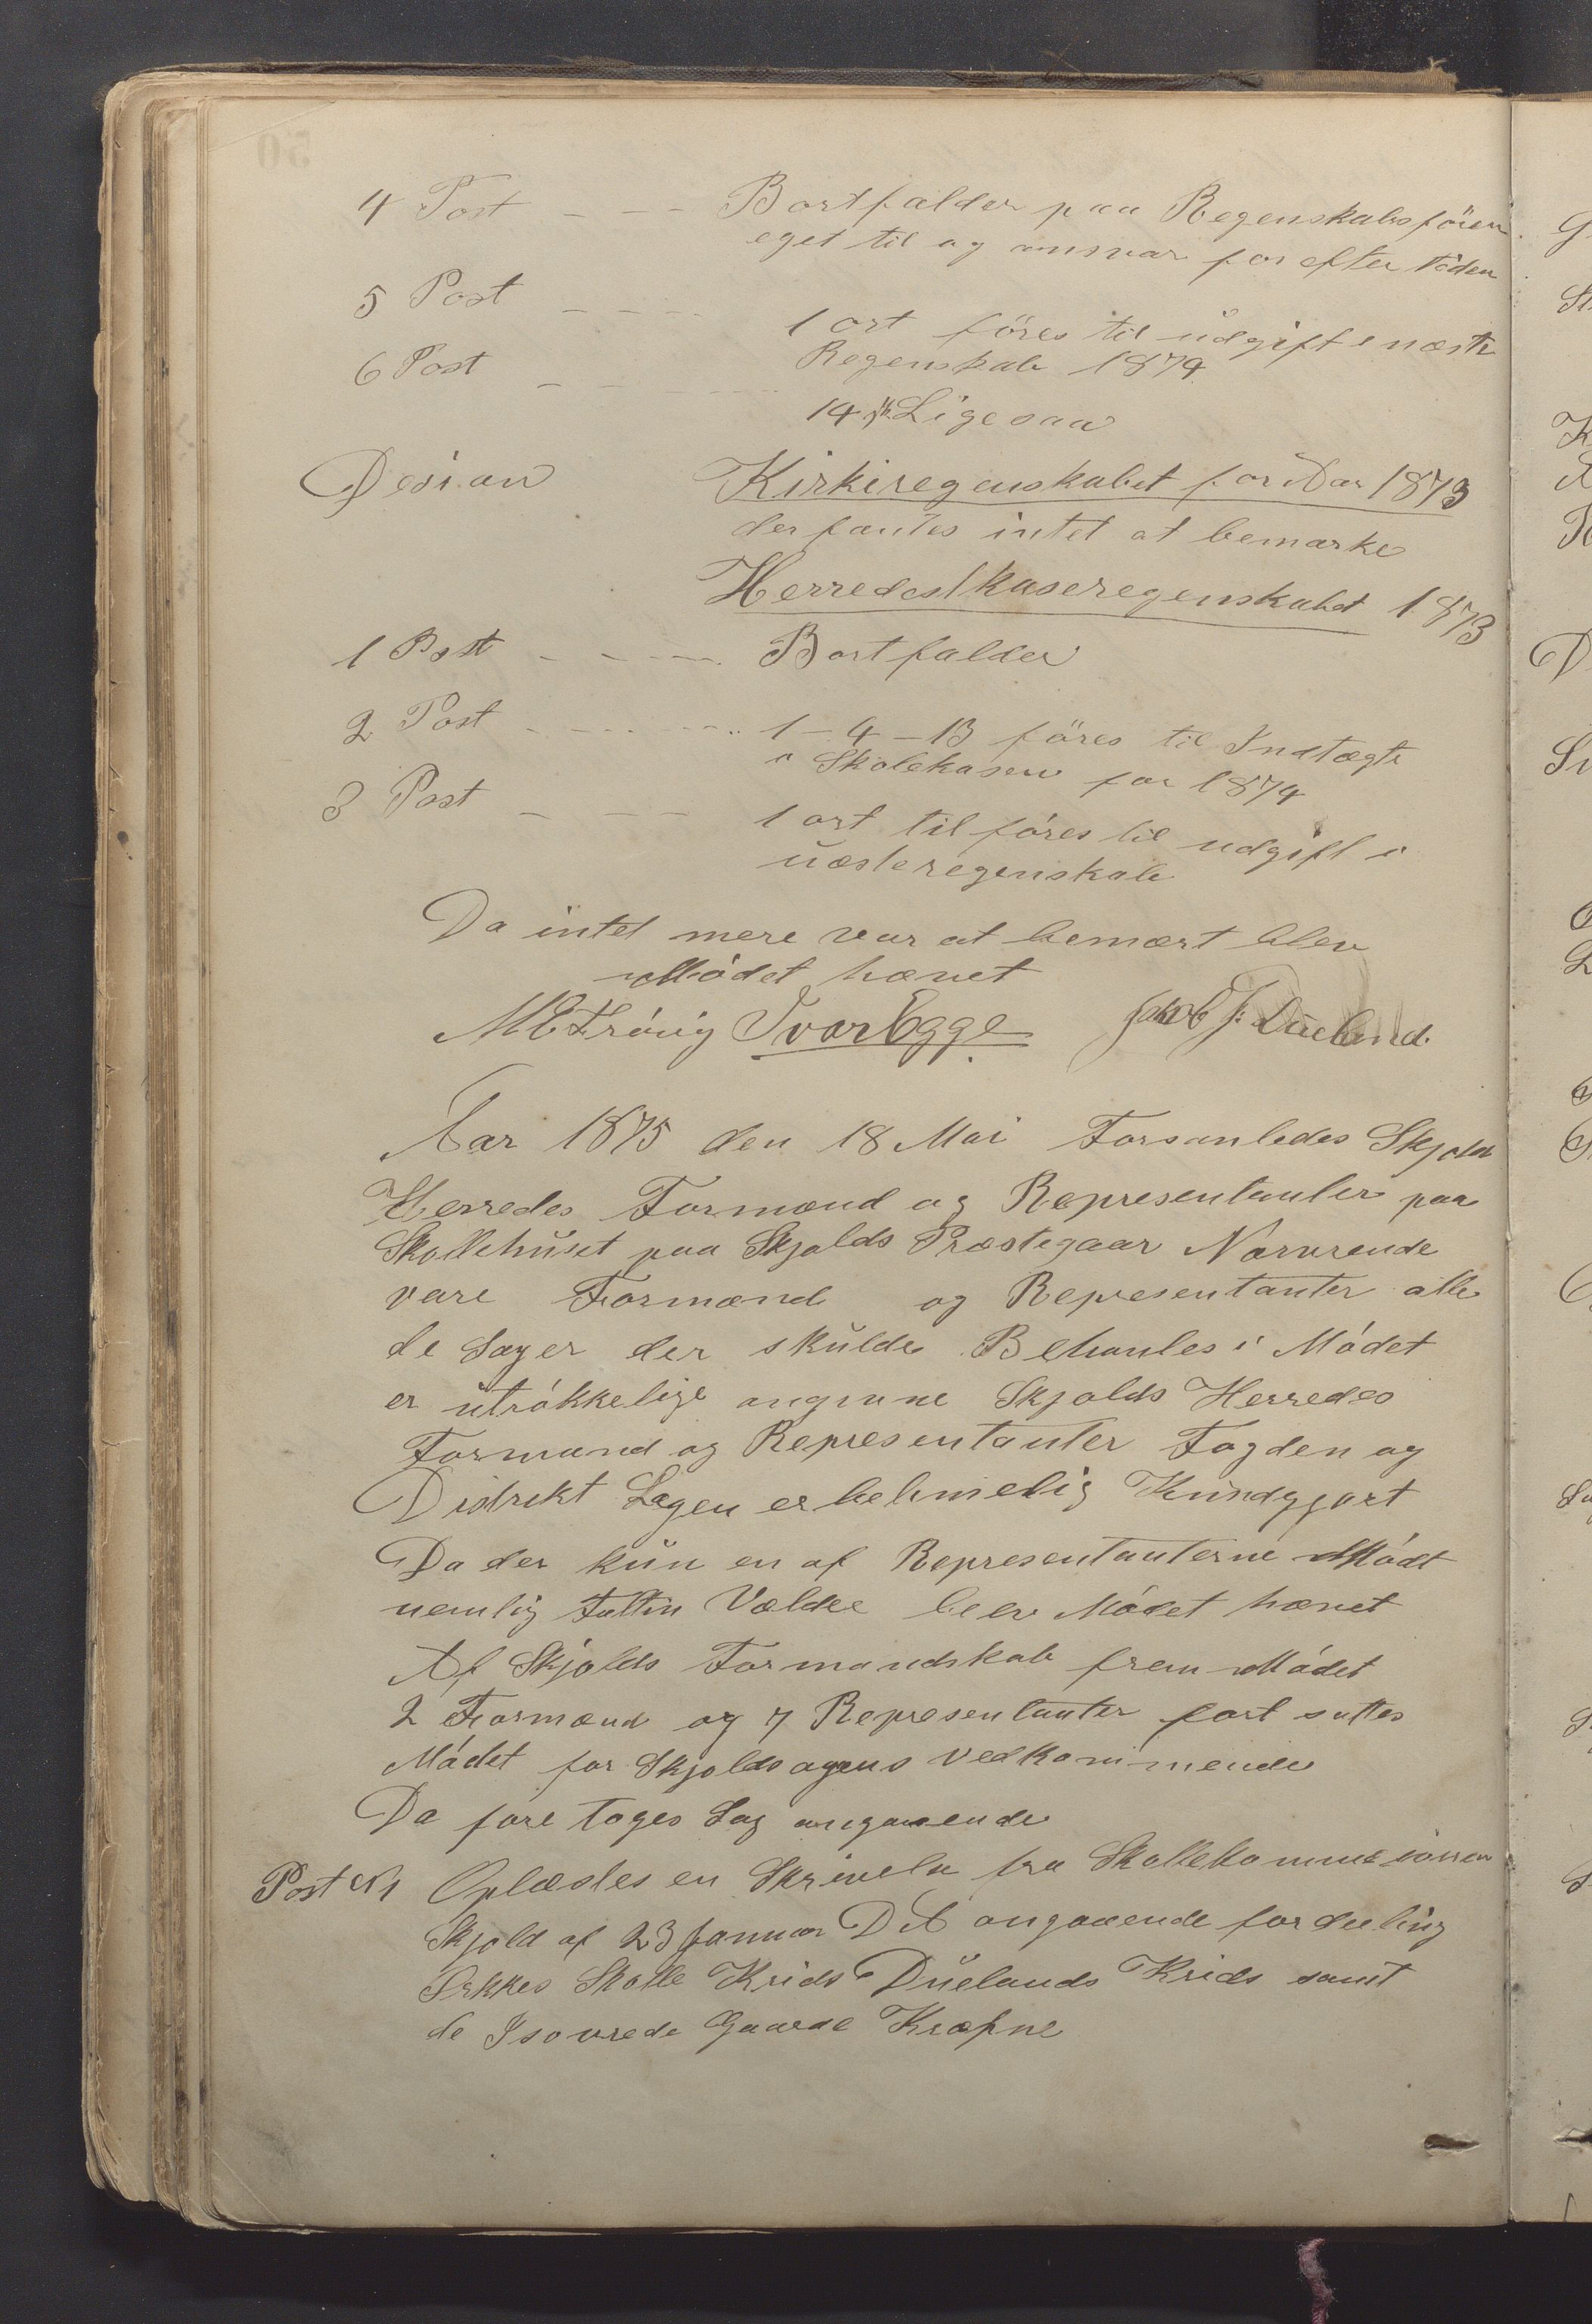 4 Post - - - Bortfalder paa Regenskabsfören
eget til og ansvar for efter tiden
5 Post - - - - 1 ort föres til udgift i næste
Regenskab 1874
6 Post - - - - 14 sk Ligesaa
Desian Kirkiregenskabet for Aar 1873
der fantes intet at bemærke
Herredeskaseregenskabet 1873
1 Post - - - - Bortfalder
2 Post - - - - 1 - 4 - 13 föres til Indtægt
i Skolekasen for 1874
3 Post - - - 1 ort til föres til udgift i
næsteregenskab
Da intet mere var at bemært blev
Mödet hævet
Ivar Egge Jakob J: Dueland.
Aar 1875 den 18 Mai Forsanledes Skjold
Herredes Formænd og Representanter paa
Skollehuset paa Skjolds Præstegaar Nærvrende
vare Formænd og Representanter alle
de Sager der skulde Behanles i Mödet
er itrökkelige Skjolds Herredes
Formænd og Representanter Fogden og
Distrikt Lægen er behmelig Kundgjort
Da der kun en af Representanterne Mödt
nemlig Vælde blev Mödet hævet
Af Skjolds Formandskab frem Mödet
2 Formænd og 7 Representanter fort sattes
Mödet for Skjoldsognes Vedkommende
Da fore toges Sag angaaende
Post N 1 Oplæstes en Skrivelse fra Skollekommesionen
Skjold af 23 Januar D A angaaende fordeeling
Skolle Krids Duelands Krids samt
de Gaarde